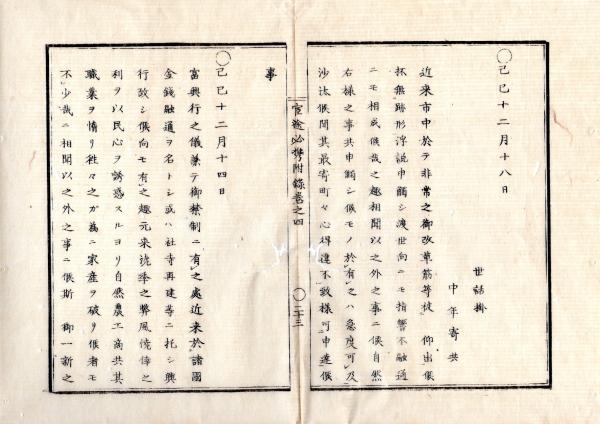 〇己巳十二月十八日
世話掛
中年寄共
近来市中於テ非常之御改革筋等被 仰出候
杯無跡形浮説申觸シ渡世向ニモ指響不融通
ニモ相成候哉之趣相聞以之外之事ニ候自然
右樣之事共申觸シ候モノ於有之ハ急度可及
沙汰候間其最寄町々心得違不致樣可申達候
官途必携附録巻之四
〇二十三
事
〇己巳十二月十四日
富興行之儀兼テ御禁制ニ有之處近来於諸國
金錢融通ヲ名トシ或ハ社寺再建等ニ托シ興
行致シ候向モ有之趣元来澆季之弊風僥倖之
利ヲ以民心ヲ誘惑スルヨリ自然農工商共其
職業ヲ惰リ往々之ガ為ニ家産ヲ破リ候者モ
不少哉ニ相聞以之外之事ニ候斯 御一新之